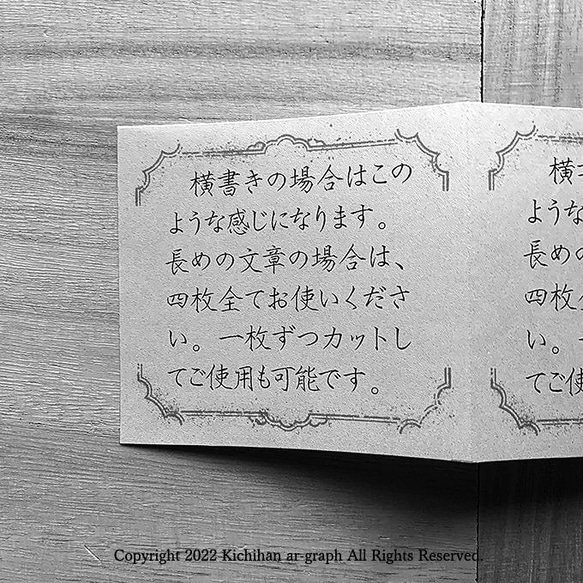 横書きの場合はこの
ような感じになります。
長めの文章の場合は、
四枚全てお使いくださ
い。一枚ずつカットし
てご使用も可能です。
横
ような
長めの
四枚
い。
てご使
Copyright 2022 Kichihan ar-graph All Rights Reserved.